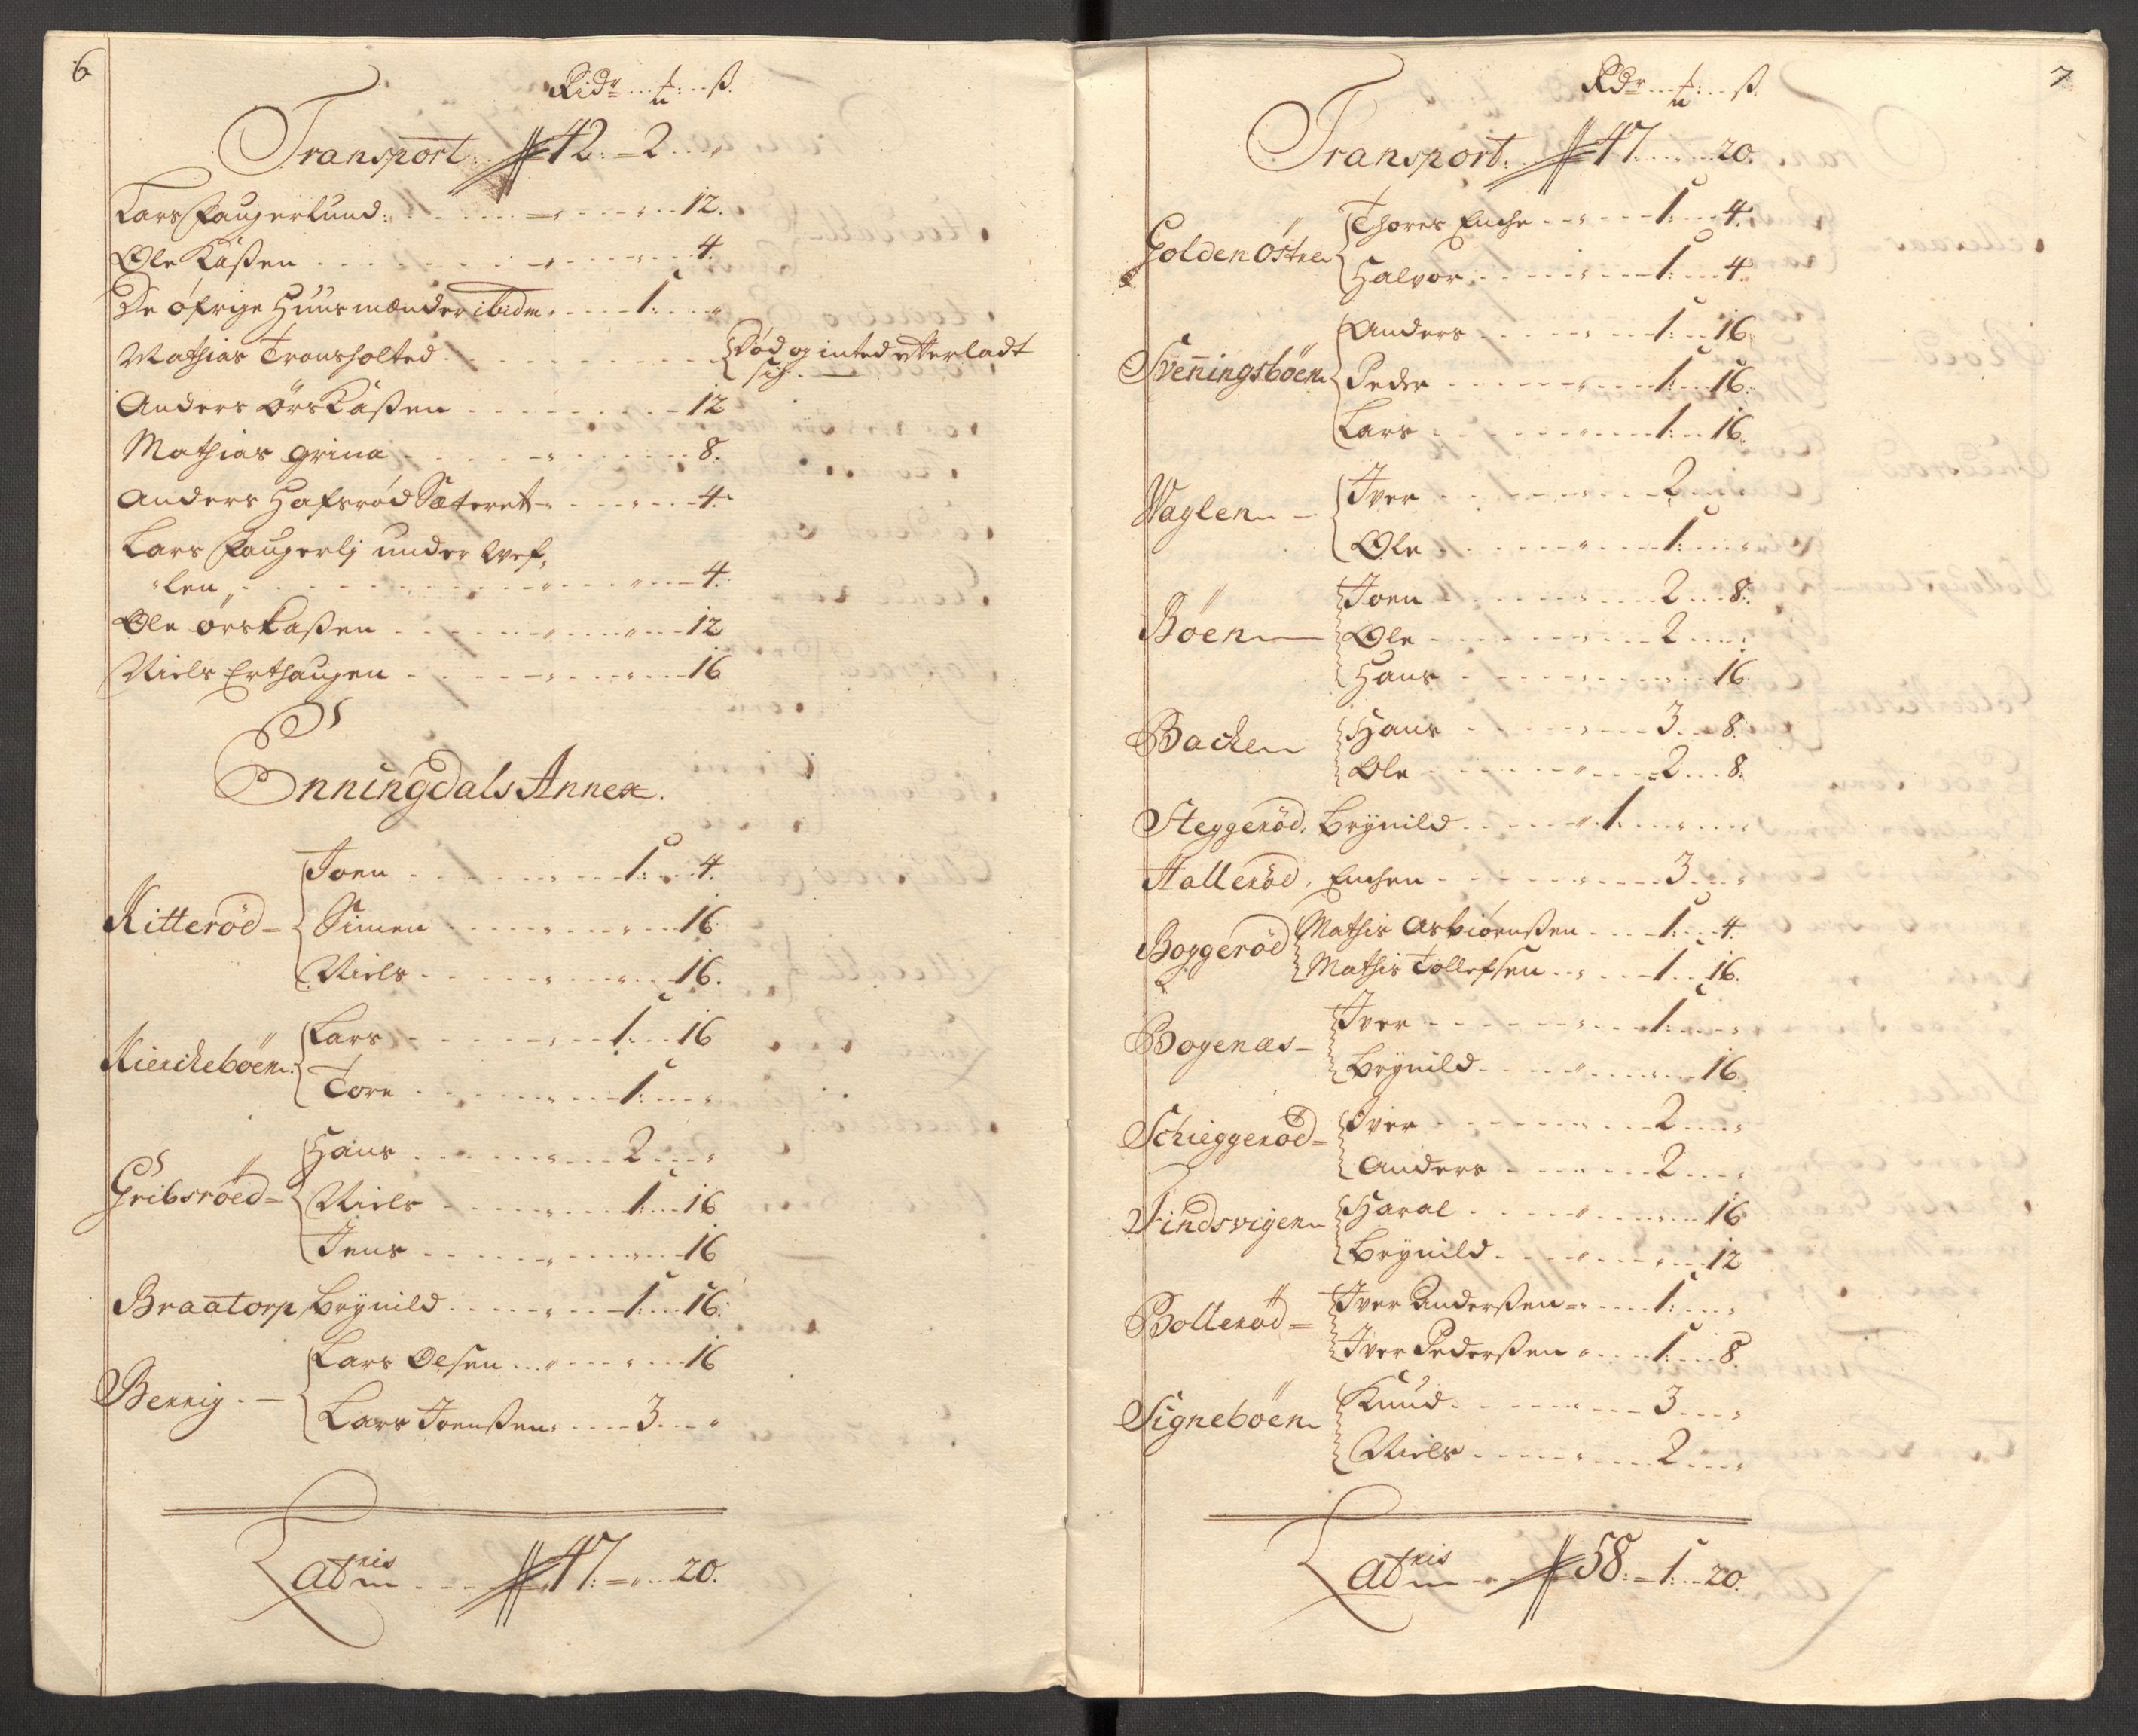 6
Ridr ... ... ß.
Transport. 42. - 2 . . "
Lars Haugerlund: . . . . . 12.
Ole Kaßen . . . . . 4.
De øfrige Huusmænder ibidm . . . 1: . . "
Mathias Tronsholted . . . . . { Død og inted efterladt
sig.
Anders ørsKaßen . . . . . 12
Mathias grina . . . . . 8.
Anders Hafsrød Sæteret . . . . . 4.
Lars Haugerlj under Wef,
"len, . . . . . 4.
Ole ørskaßen . . . . . 12
Niels Erthaugen . . . . . 16
Enningdals Annex.
Kitterød - { Joen . . . . . 1: . . 4.
Simen . . . . . 16
Niels . . . . . 16.
Kierckebøen: { Lars . . . . . 1: . . 16
Tore . . . . . 1: . . "
Gribsrøed = { Hans . . . . . 2 . . "
Niels . . . . . 1: . . 16
Jens . . . . . 16
Braatorp, Brynild . . . . . 1: . . 16:
Berrig. - { Lars Olsen . . . . . 16
Lars Joenßen . . . . . 3 . . "
Latris 47: = " . . 20.
7
Rdr ... ... ß.
Transport. 47. . . . . 20.
Golden østre { Thores Enche . . . . . 1: . . 4.
Halvor . . . . . 1: . . 4.
Sveningsbøen { Anders . . . . . 1: . . 16.
Peder . . . . . 1: . . 16.
Lars . . . . . 1: . . 16.
Waglen - { Iver . . . . . 2 . . "
Ole . . . . . 1: . . "
Bøen { Joen . . . . . 2 . . 8.
Ole . . . . . 2 . . "
Hans . . . . . 16
Backen { Hans . . . . . 3 . . 8.
Ole . . . . . 2 . . 8.
Steggerød, Brynild . . . . . 1: . . "
Hallerød, Enchen . . . . . 3 . . "
Boggerød { Mathis Asbiørnßen . . . 1: . . 4.
Mathis Tollefsen . . . . . 1 . . 16.
Bogenæs - { Iver . . . . . 1: . . "
Brynild . . . . . 16
Schieggerød = { Iver . . . . . 2 . . "
Anders . . . . . 2 . . "
Findsvigen { Haral . . . . . 16
Brynild . . . . . 12
Bollerød = { Iver Anderßen . . . . . 1: . . "
Iver Pederßen . . . . . 1: . . 8.
Signebøen { Knud . . . . . 3 . . "
Niels . . . . . 2 . . "
Latris 58: = 1: . . 20.